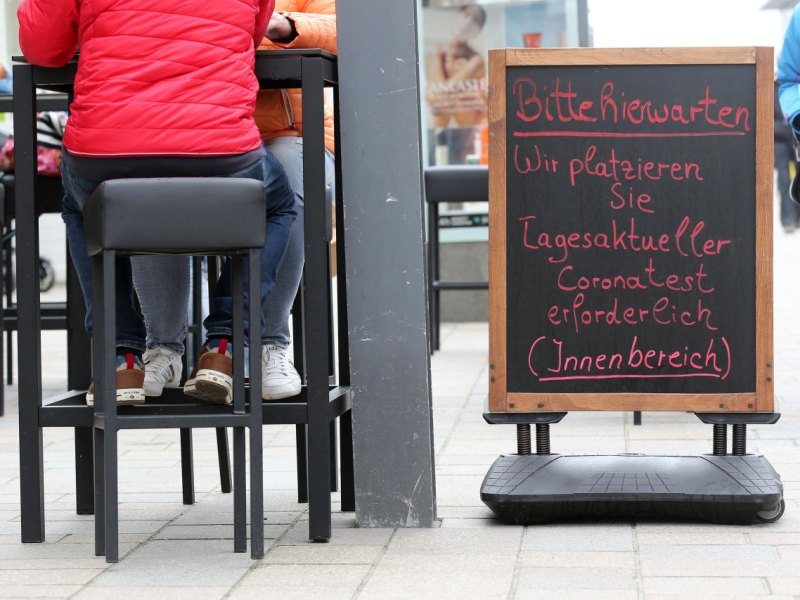 LANCASTER
Bitte hier warten
Wir platzieren
Sie
Tagesaktueller
Coronatest
erforderlich
(Innenbereich)